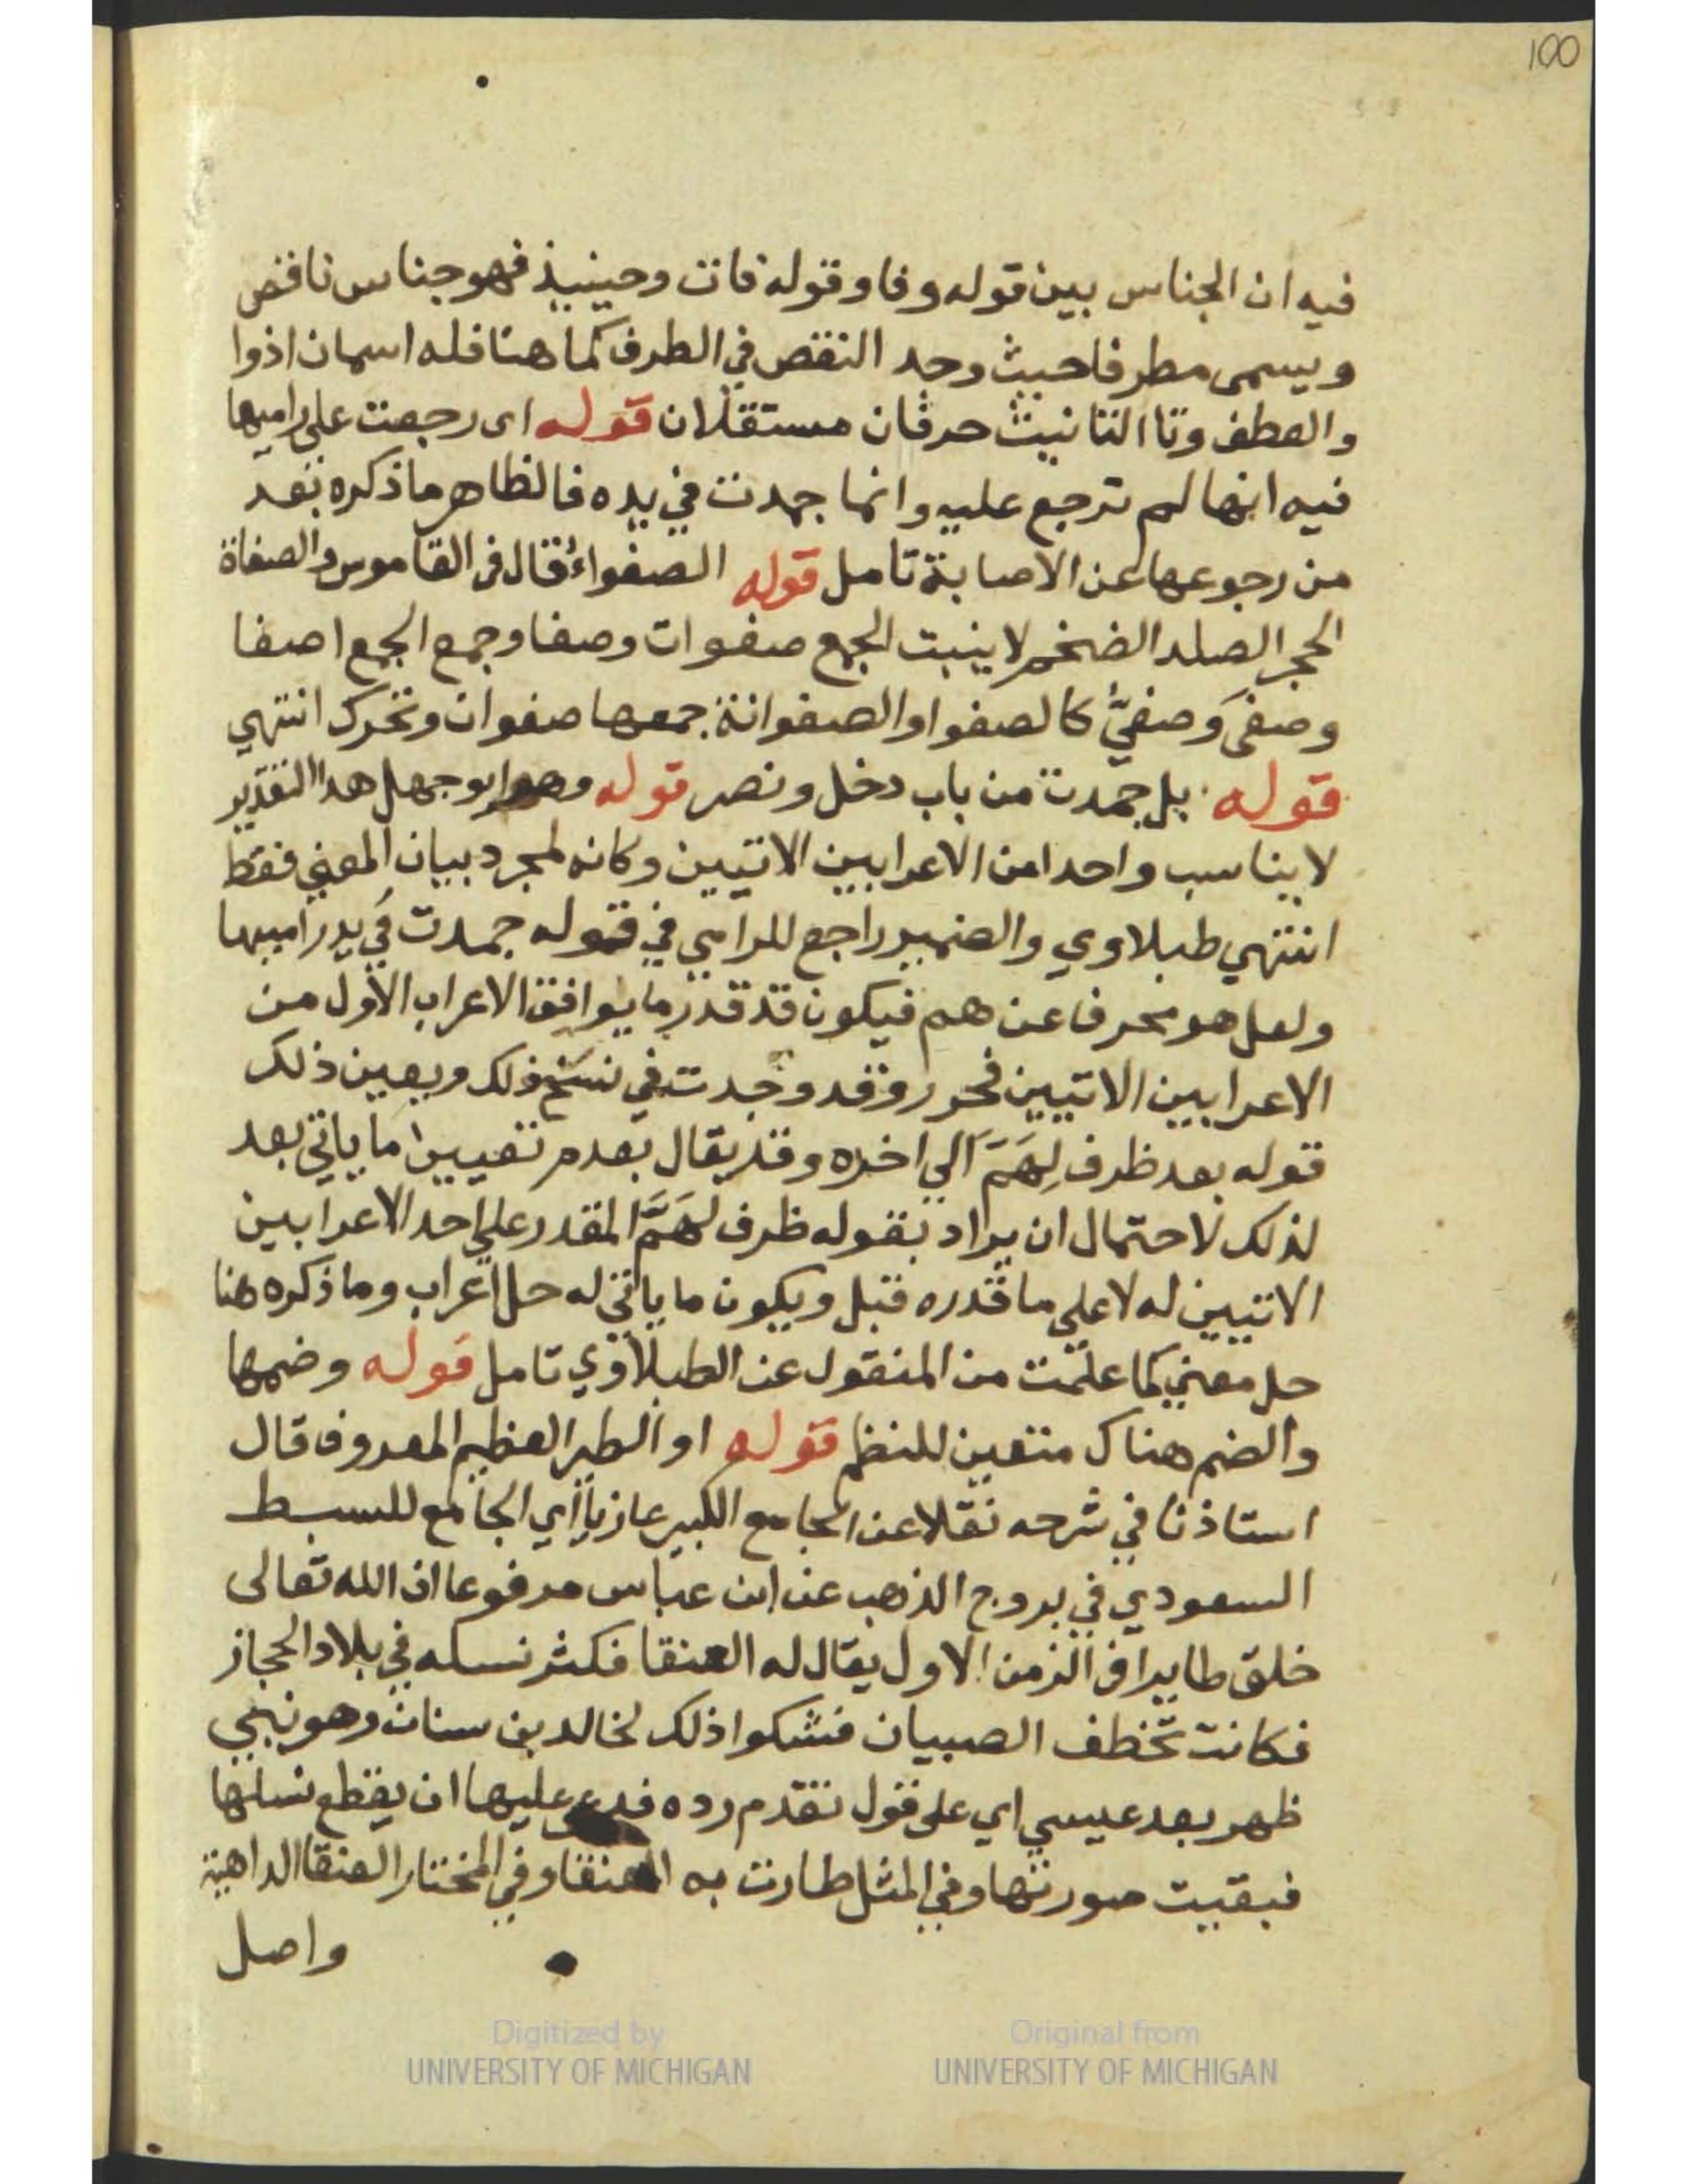 100
فيه ان الجناس بين قوله وفا وقوله فات وحينيذ فهو جناس ناقص
ويسمى مطرفا حيث وجد النقص في الطرف كما هنا فله اسمان اذ وا
والعطف وتا التانيث حرفان مستقلان قوله اى رجعت على راميها
فيه انها لم ترجع عليه وانما جمدت في يده فالظاهر ما ذكره بعد
من رجوعها عن الاصابة تامل قوله الصفواء قال في القاموس والصفاة
الحجر الصلد الضخم لا ينبت الجمع صفوات وصفا وجمع الجمع اصفا
وصفى وصفيٌّ كالصفوا والصفوانة جمعها صفوان وتحرك انتهي
قوله بل جمدت من باب دخل ونصر قوله وهو ابو جهل هذا التقدير
لا يناسب واحدا من الاعرابين الاتيين وكانه لمجرد بيان المعني فقط
انتهي طبلاوي والضمير راجع للرامي في قوله جمدت في يد راميها
ولعل هو محرف عن هم فيكون قد قدر ما يوافق الاعراب الاول من
الاعرابين الاتيين فحرر وقد وجدت في نسخ ذلك ويعين ذلك
قوله بعد ظرف لِهَمَّ الي اخره وقد يقال بعدم تعيين ما ياتي بعد
لذلك لاحتمال ان يراد بقوله ظرف لهَمَّ المقدر علي احد الاعرابين
الاتيين له لا علي ما قدره قبل ويكون ما ياتي له حل اعراب وما ذكره هنا
حل معني كما علمت من المنقول عن الطبلاوي تامل قوله وضمها
والضم هناك متعين للنظم قوله او الطير العظيم المعروف قال
استاذنا في شرحه نقلا عن الجامع الكبير عازيا اي الجامع للسبط
السعودي في بروج الذهب عن ابن عباس مرفوعا ان الله تعالى
خلق طايرا في الزمن الاول يقال له العنقا فكثر نسله في بلاد الحجاز
فكانت تخطف الصبيان فشكوا ذلك لخالد بن سنان وهو نبي
ظهر بعد عيسي اي على قول تقدم رده فدعي عليها ان يقطع نسلها
فبقيت صورتها وفي المثل طارت به العنقا وفي المختار العنقا الداهية
واصل
Digitized by
UNIVERSITY OF MICHIGAN
Original from
UNIVERSITY OF MICHIGAN